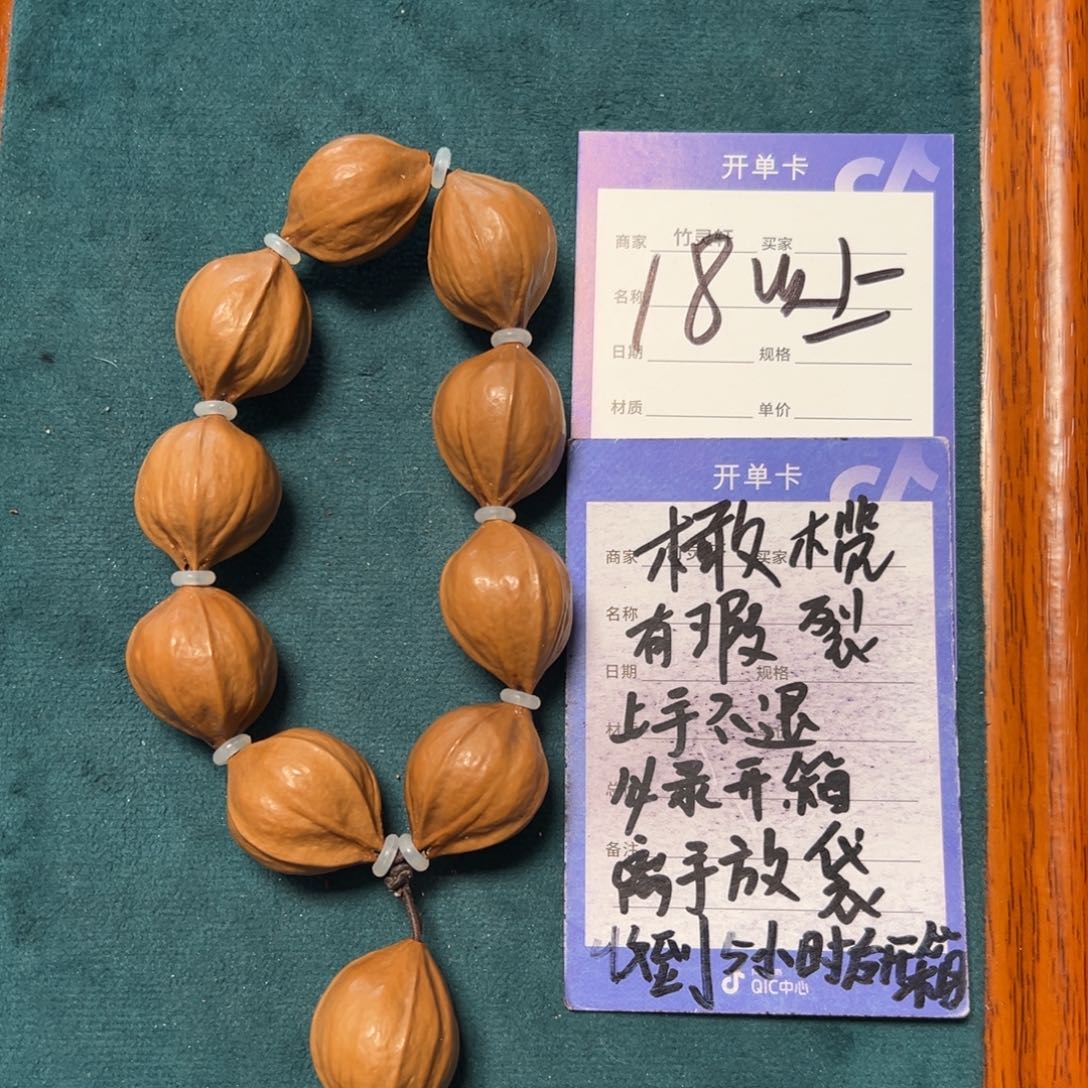 开单卡
商家 竹灵轩 买家
18
名称
日期 规格
材质 单价
开单卡
商家 买家
橄榄
名称
有瑕裂
日期 规格
上手不退
必录开箱
备注
离手放袋
收到5小时后开箱
QIC中心